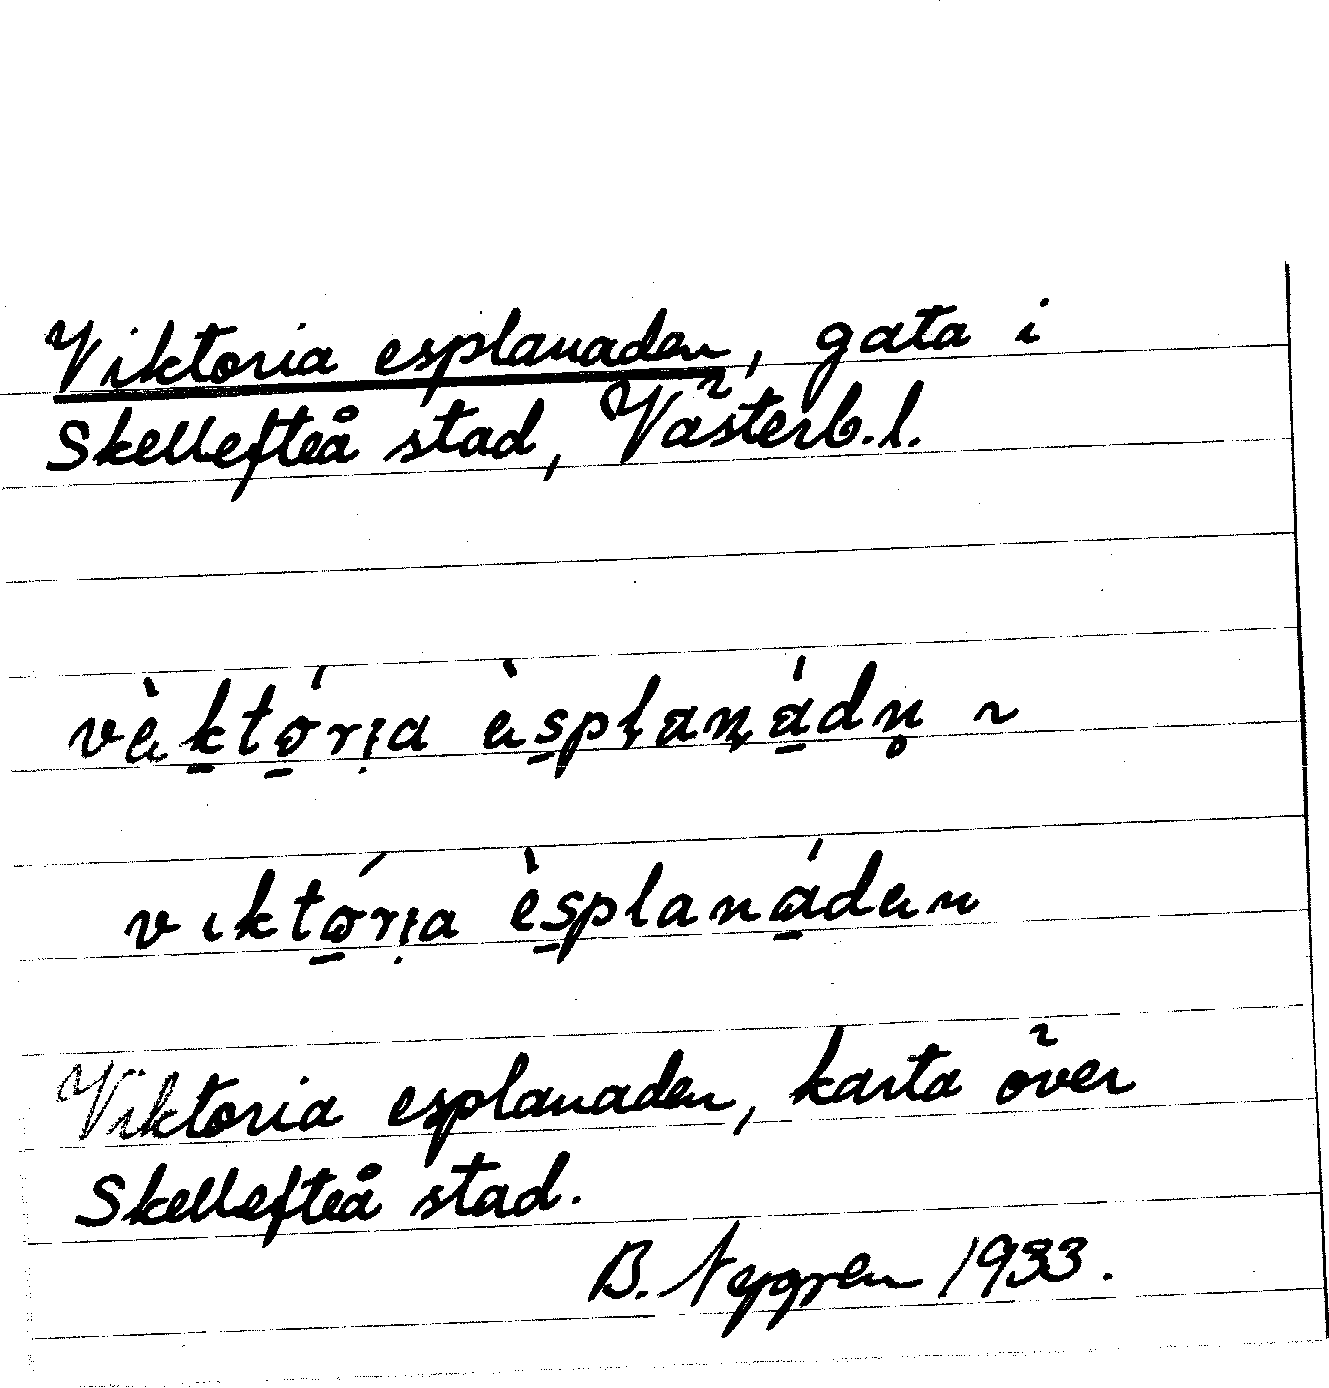 Viktoria esplanaden, gata i
Skellefteå stad, Västerb.l.
vèktória èsplanádn̥ ~
viktória èsplanáden
Viktoria esplanaden, karta över
Skellefteå stad.
B. Nygren 1933.